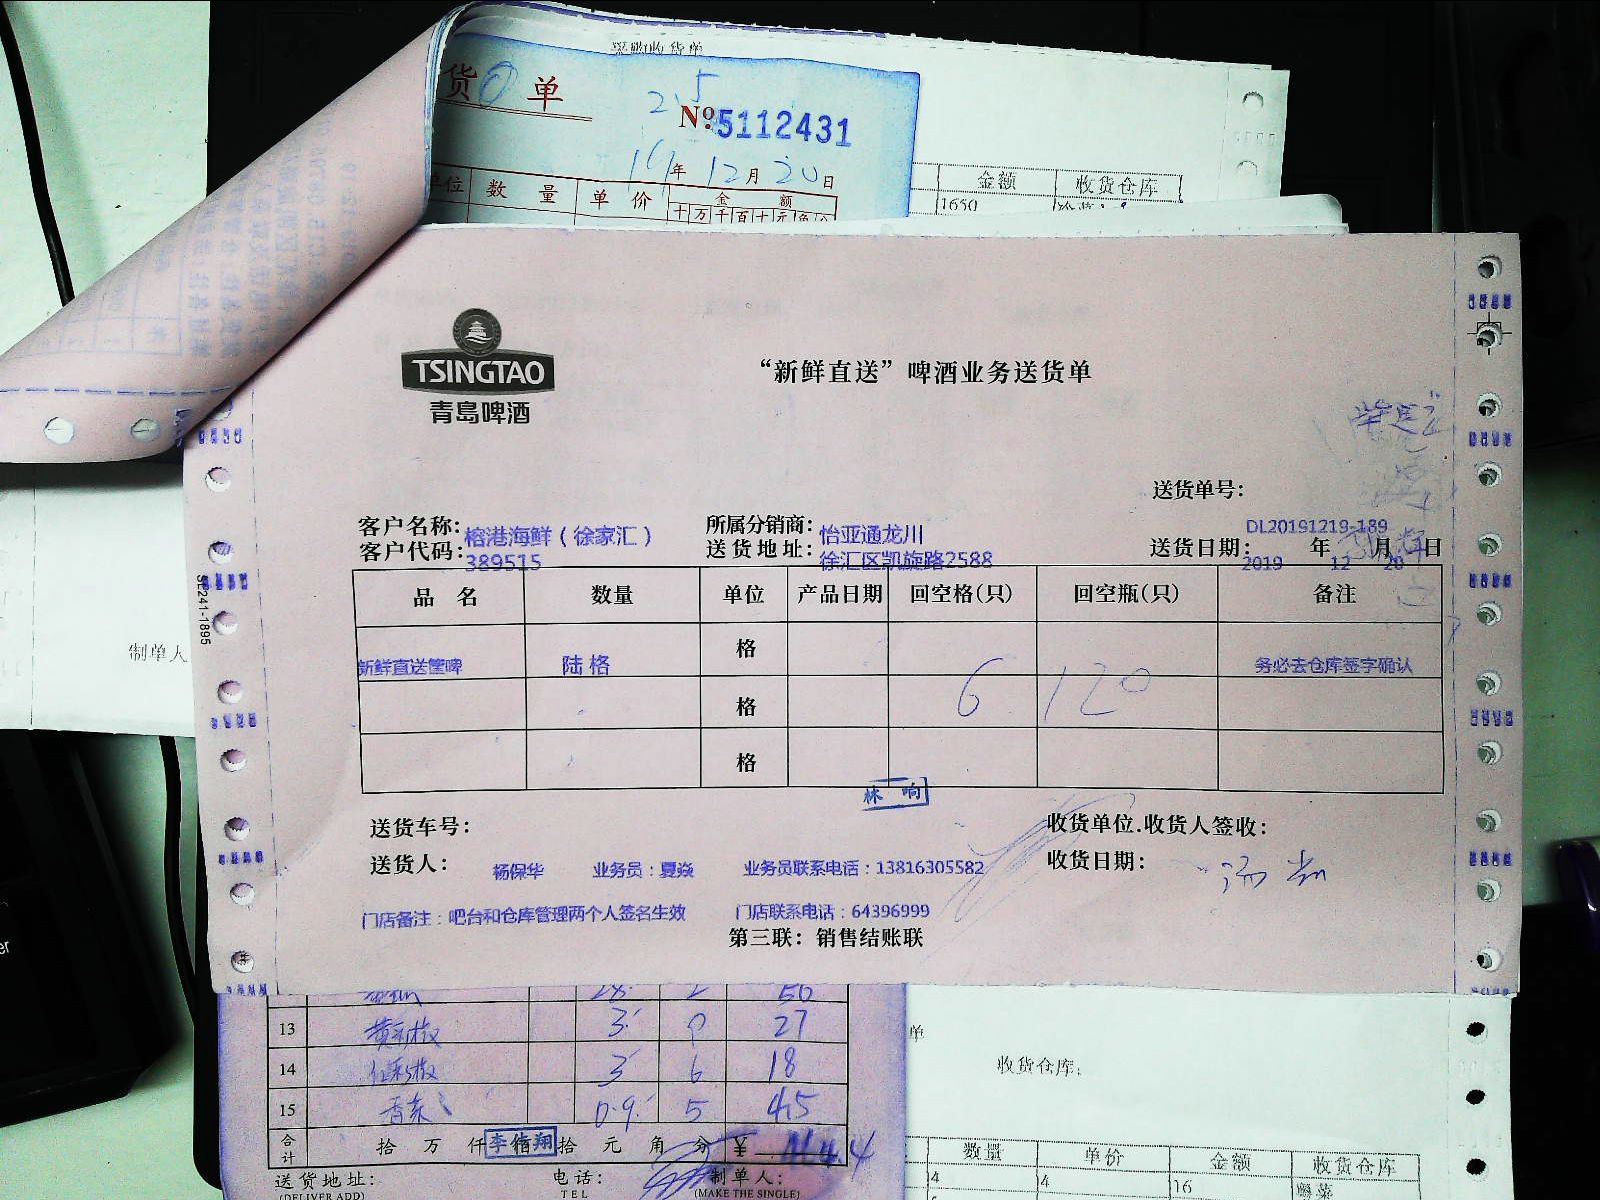 采购收货单
货 单
25
Nº 5112431
年 12 月 20 日
单位 数 量 单 价 金 额
十 万 千 百 十 元 角 分
金额 收货仓库
1650
TSINGTAO
青岛啤酒
“新鲜直送”啤酒业务送货单
送货单号：
DL20191219-189
客户名称：榕港海鲜（徐家汇） 所属分销商：怡亚通龙川
客户代码：389515 送货地址：徐汇区凯旋路2588 送货日期： 2019 年 12 月 20 日
品 名 数量 单位 产品日期 回空格(只) 回空瓶(只) 备注
新鲜直送筐啤 陆格 格 务必去仓库签字确认
格 6 120
格
林 响
送货车号： 收货单位.收货人签收：
送货人： 杨保华 业务员：夏焱 业务员联系电话：13816305582 收货日期：
门店备注：吧台和仓库管理两个人签名生效 门店联系电话：64396999
第三联：销售结账联
SL241-1895
制单人
13 3 9 27
14 3 6 18
15 0.9 5 4.5
合计 拾 万 仟 拾 元 角 分 ¥
李佰翔
送货地址： 电话： 制单人：
(DELIVER ADD) TEL (MAKE THE SINGLE)
单
收货仓库：
数量 单价 金额 收货仓库
4 4 16